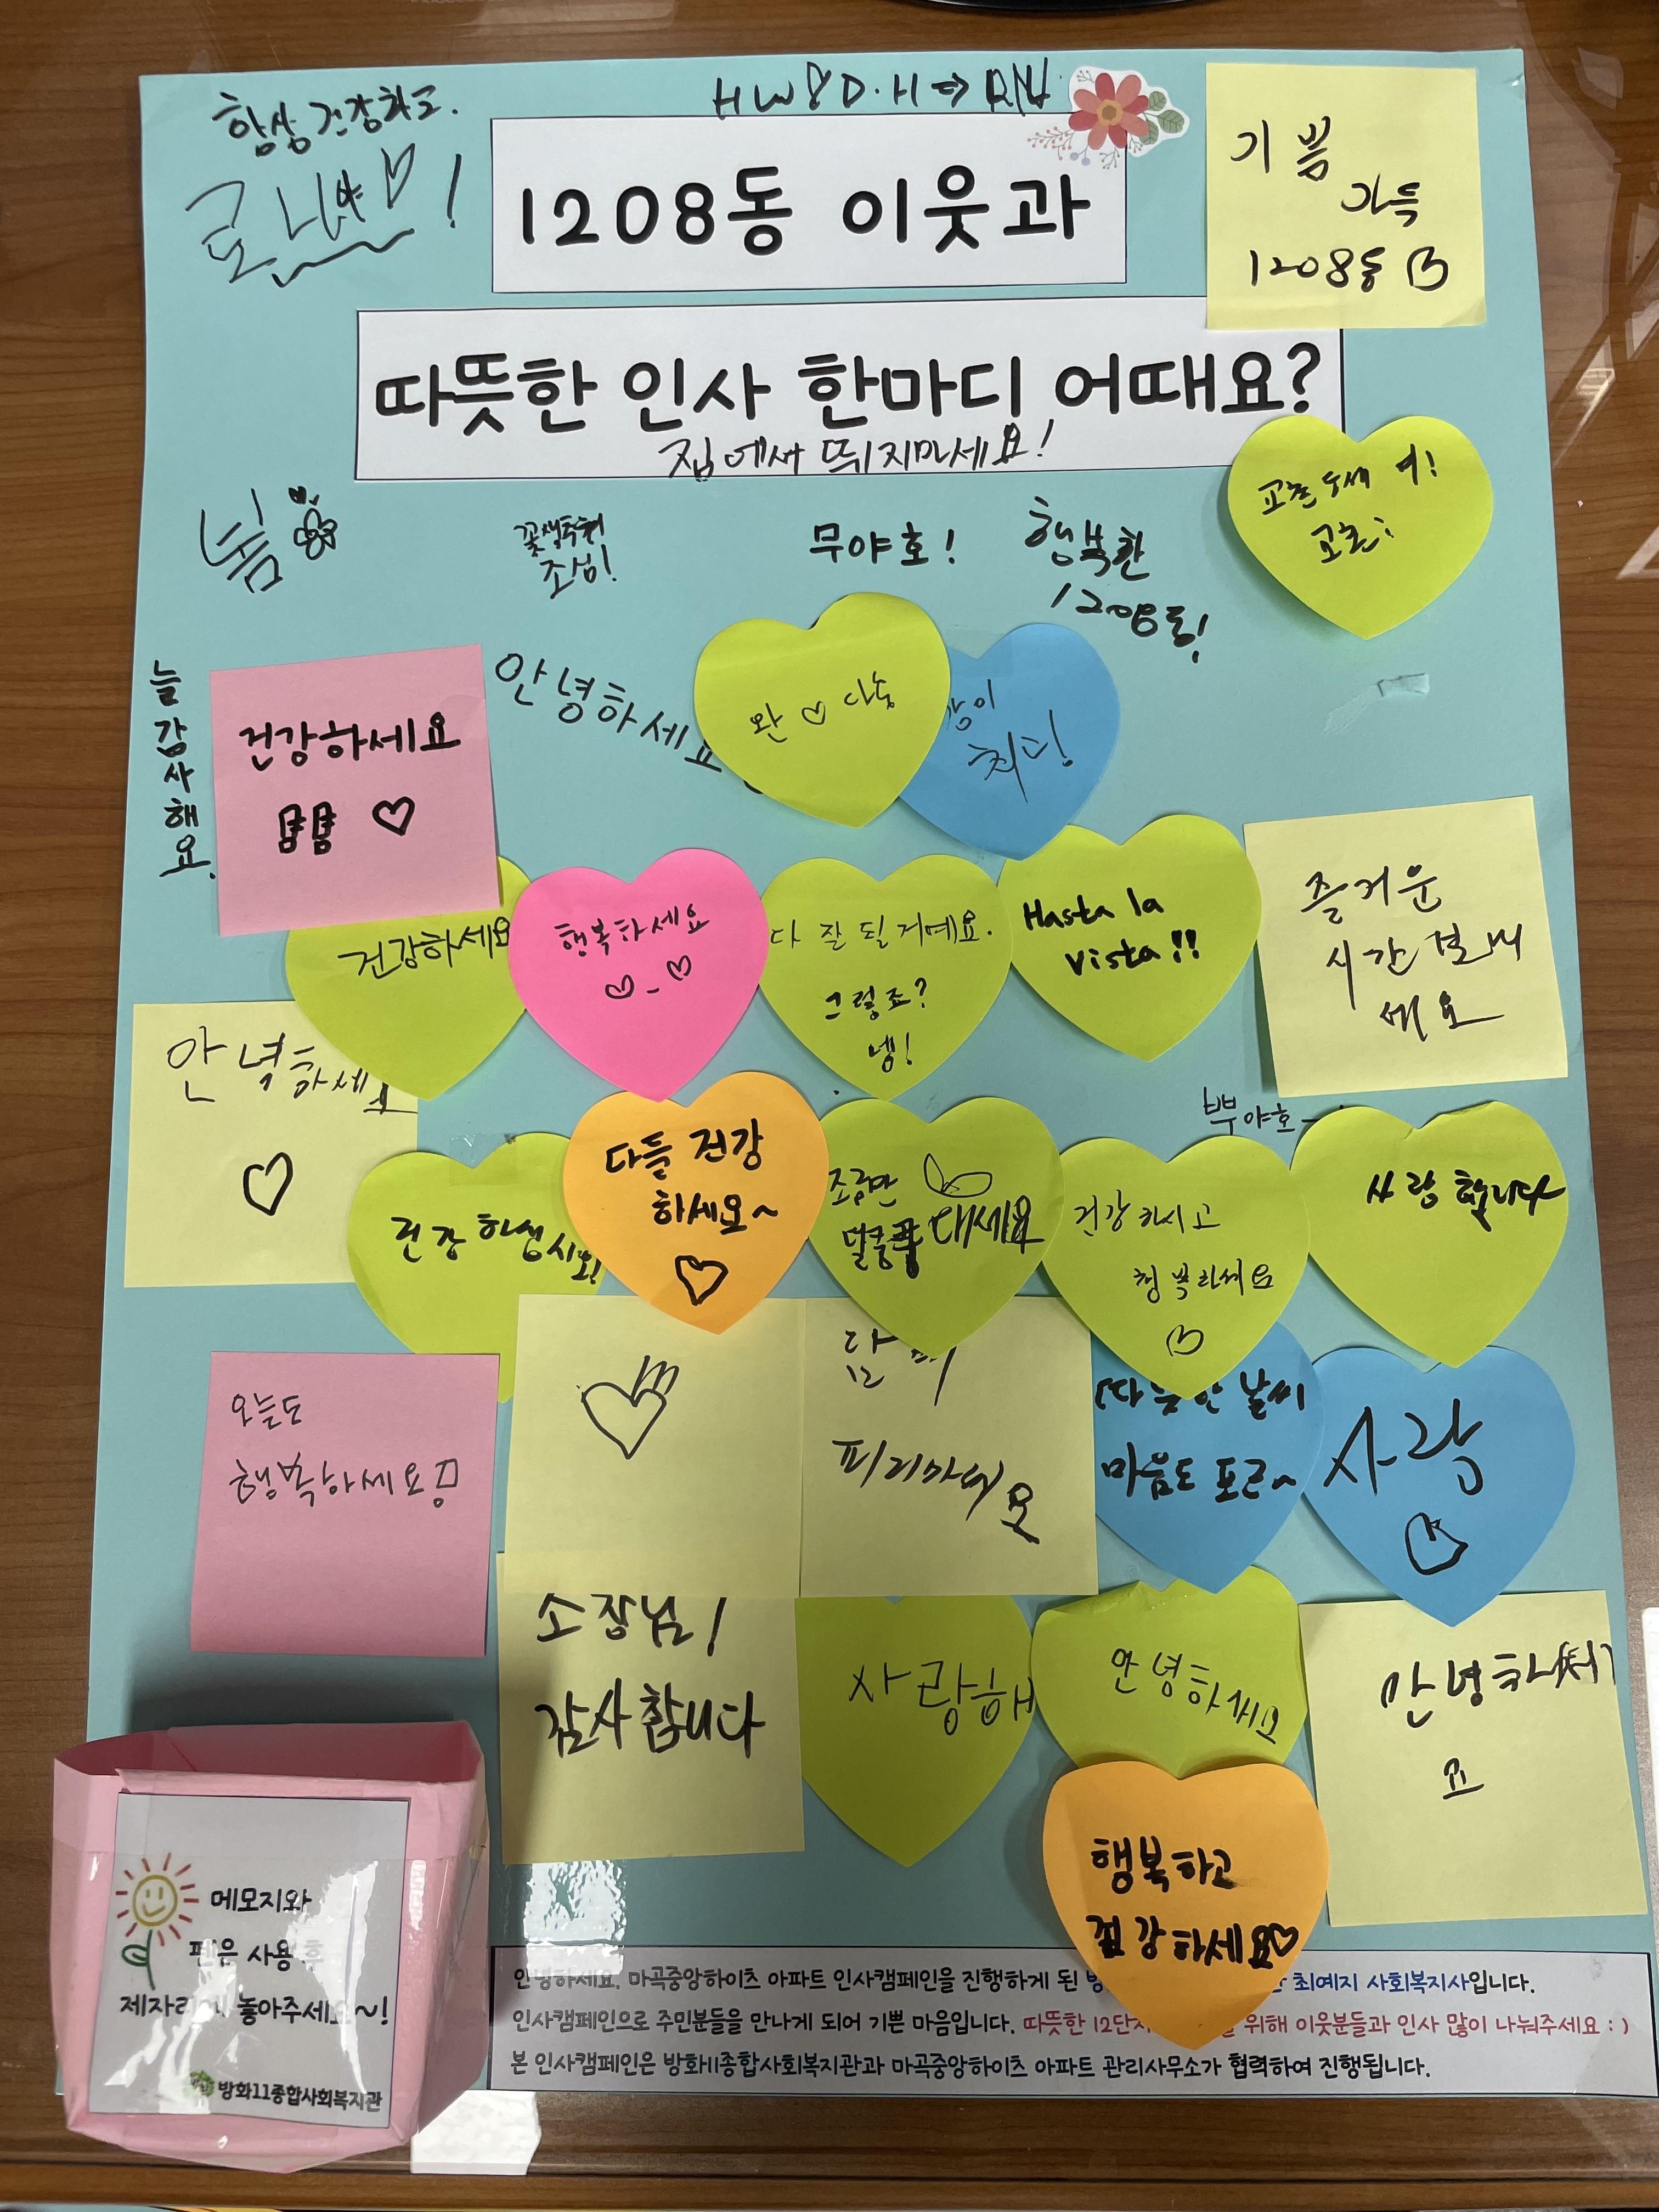 항상 건강하고.
HW & D.H →
1208동 이웃과
기쁨
가득
1208동
따뜻한 인사 한마디 어때요?
집에서 뛰지마세요!
봄
꽃샘추위
조심!
무야호!
행복한
1208동!
늘 감사해요.
건강하세요
안녕하세요
완 ♡
이
최고!
건강하세요
행복하세요
♡-♡
다 잘 될 거예요.
그렇죠?
넹!
Hasta la
Vista!!
즐거운
시간 보내
세요
안녕하세요
♡
뿌야호-
건강하십시오!
다들 건강
하세요~
♡
조금만
대세요
건강하시고
행복하세요
사랑합니다
오늘도
행복하세요
담배
피지마세요
따뜻한 날씨
마음도 포근~
사랑
♡
소장님!
감사합니다
사랑해
안녕하세요
안녕하세
요
행복하고
건강하세요♡
메모지와
펜은 사용 후
제자리에 놓아주세요~!
방화11종합사회복지관
안녕하세요. 마곡중앙하이츠 아파트 인사캠페인을 진행하게 된 최예지 사회복지사입니다.
인사캠페인으로 주민분들을 만나게 되어 기쁜 마음입니다. 따뜻한 12단지 위해 이웃분들과 인사 많이 나눠주세요 : )
본 인사캠페인은 방화11종합사회복지관과 마곡중앙하이츠 아파트 관리사무소가 협력하여 진행됩니다.